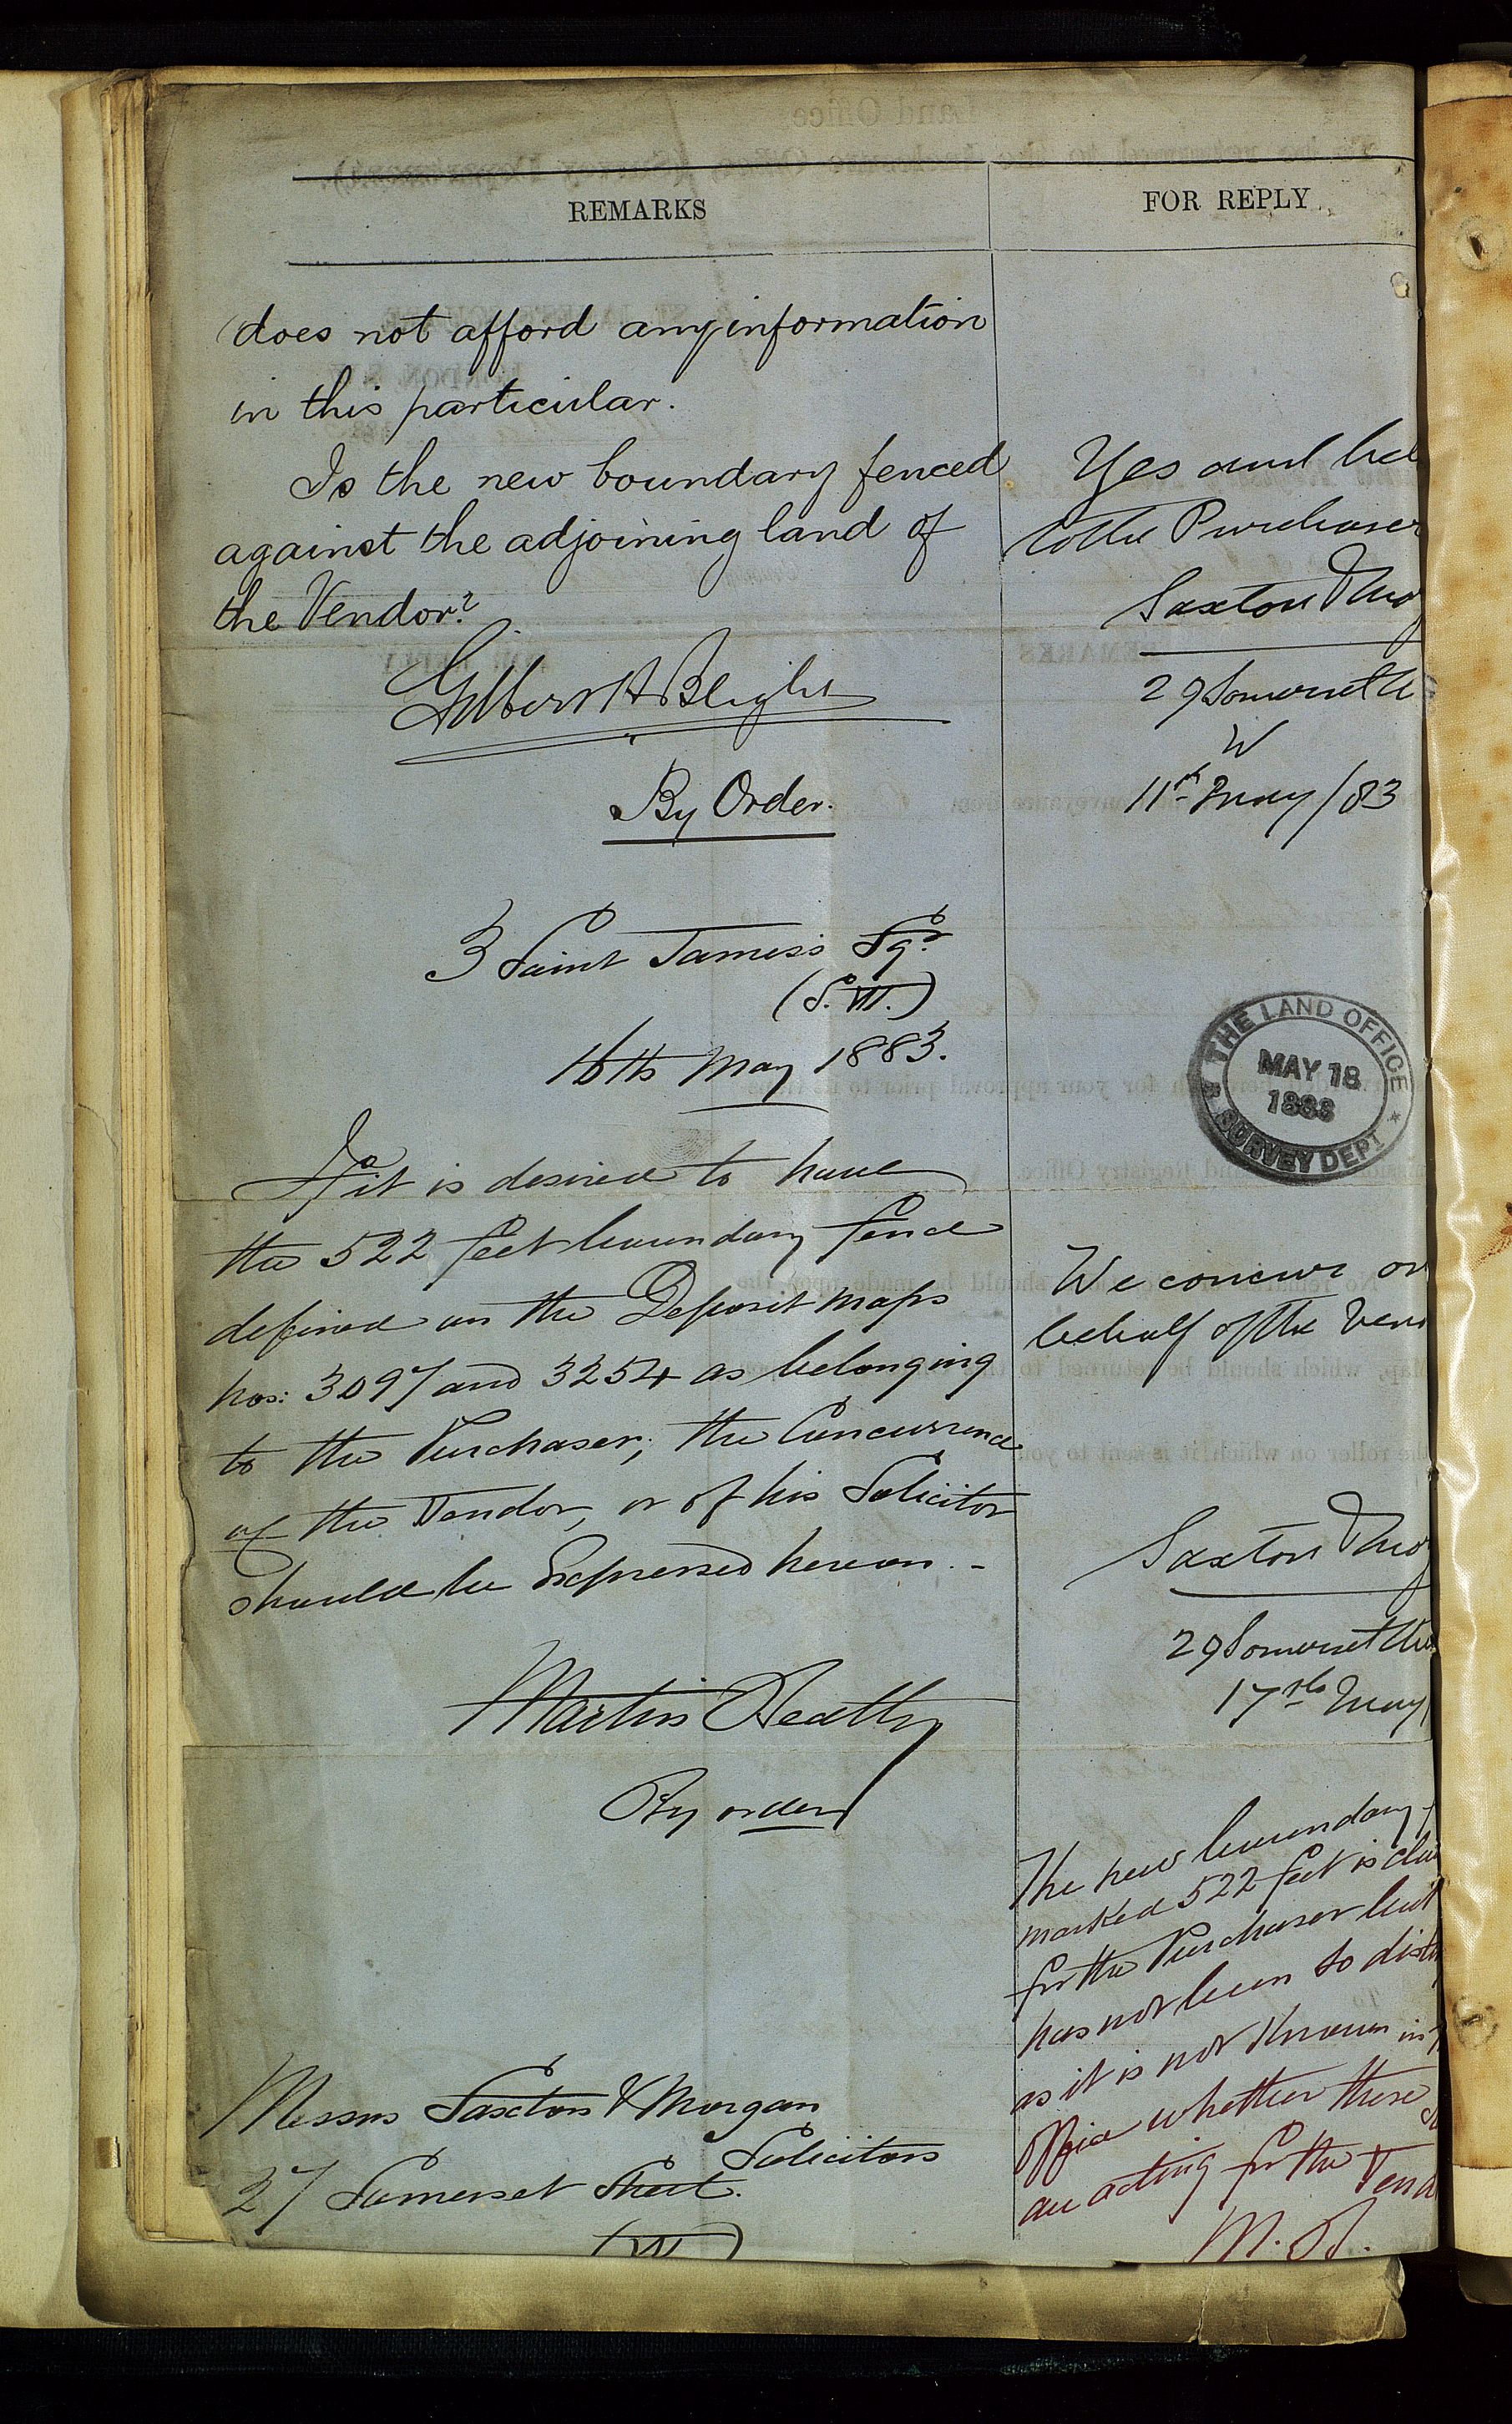 REMARKS
does not afford any information
in this particular.
Is the new boundary fenced
against the adjoining land of
the Vendor?
Gilbert H Bleigh
By Order.
3 Saint James's Sqr.
(S.W.)
16th May 1883.
If it is desired to have
the 522 feet boundary fence
defined on the Deposit maps
nos: 3097 and 3254 as belonging
to the Purchaser, the Concurrence
of the Vendor, or of his Solicitor
should be Expressed hereon. -
Martin
By order
Messrs Saxton & Morgan
Solicitors
27 Somerset Street.
(W)
FOR REPLY
Yes and bel
to the Purchaser
Saxton & Mo
29 Somerset
W
11th May /83
THE LAND OFFICE
MAY 18
1883
SURVEY DEPT
We concur on
behalf of the Ven
Saxton & Mo
29 Somerset
17th May
The new boundary
marked 522 feet is clai
for the Purchaser but
has not been so disti
as it is not known in
Office whether these
are acting for the Vend